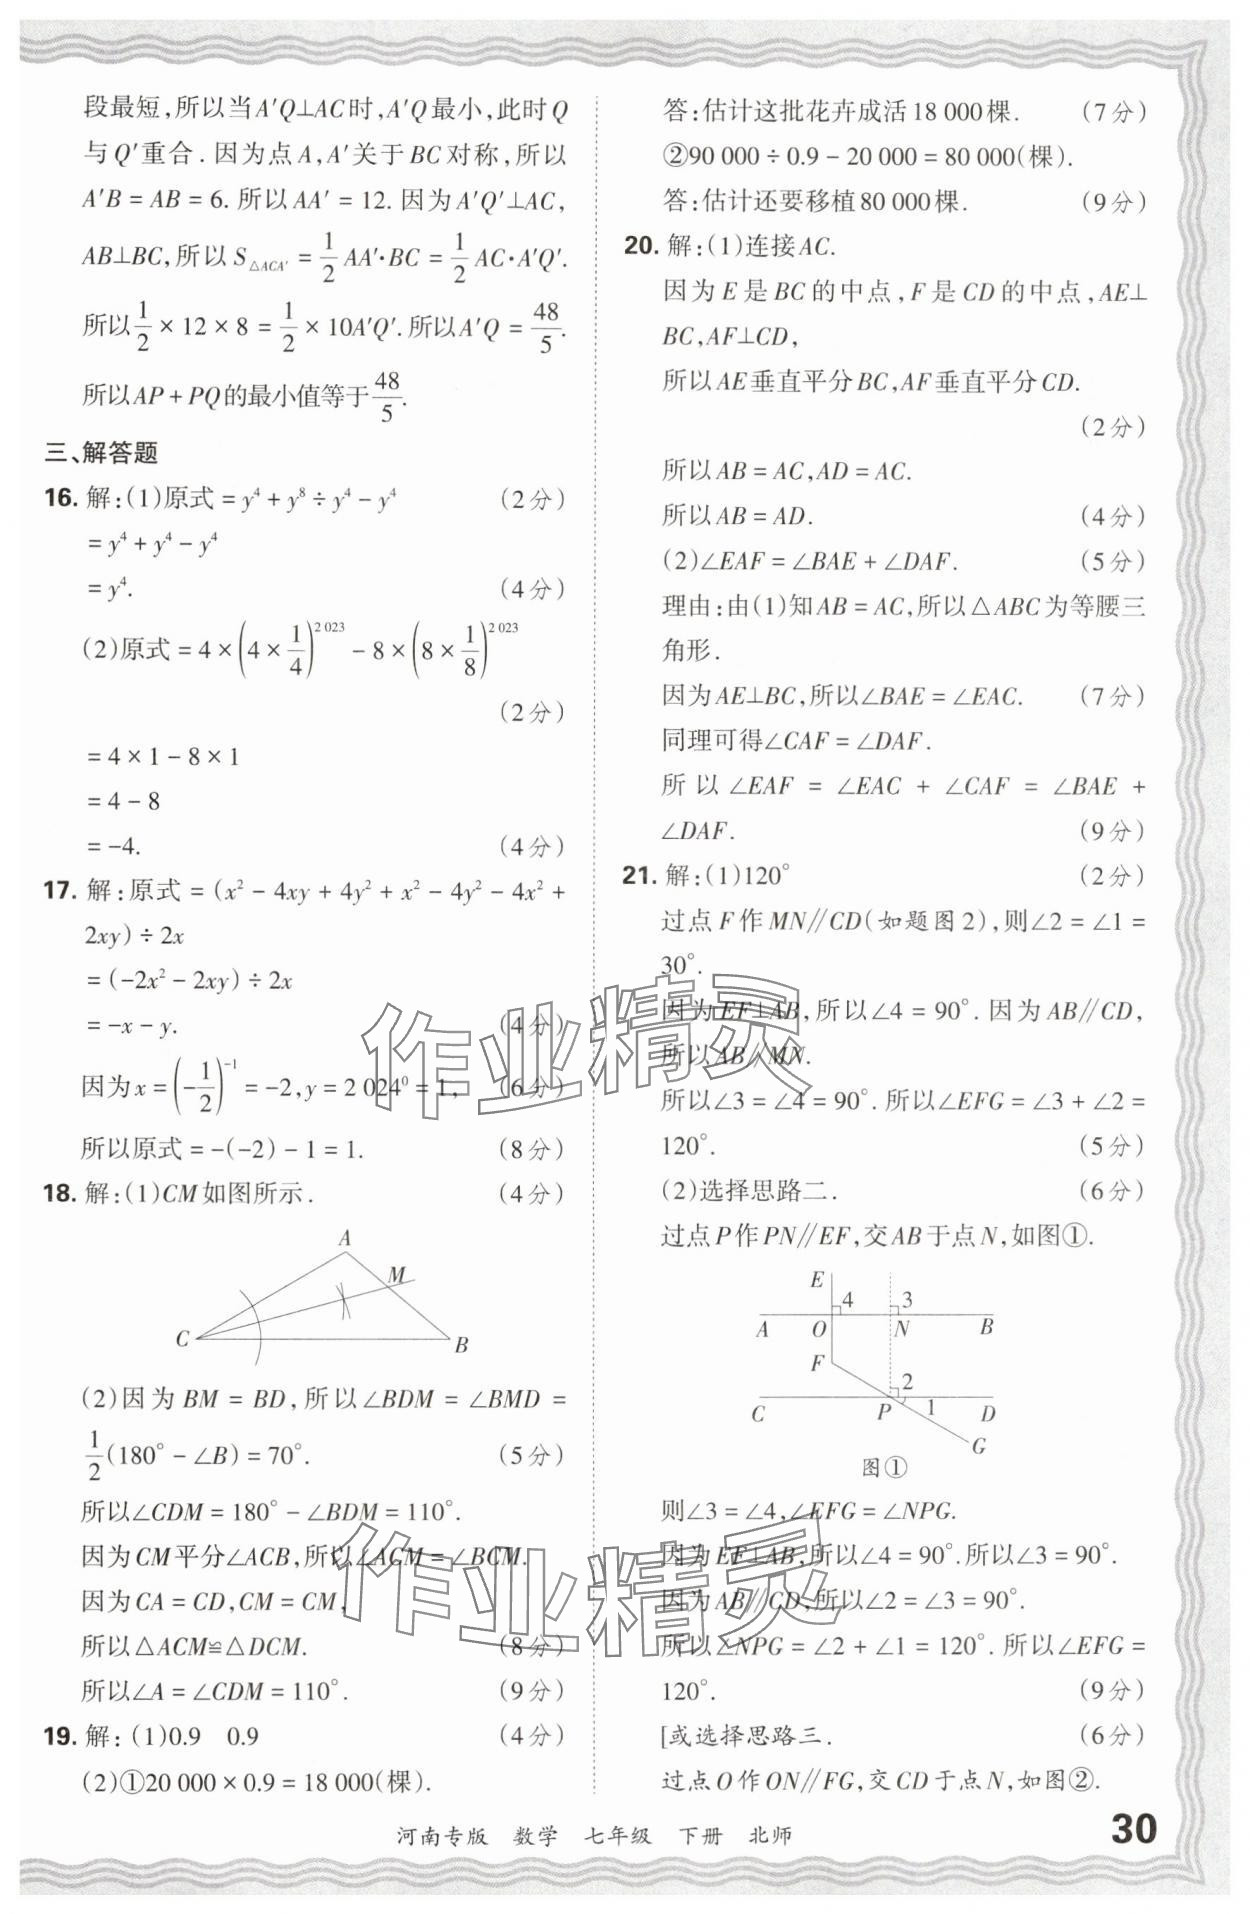 段最短,所以当A′Q⊥AC时,A′Q最小,此时Q
与Q′重合.因为点A,A′关于BC对称,所以
A′B = AB = 6. 所以 AA′ = 12. 因为 A′Q′⊥AC,
AB⊥BC,所以 S△ACA′ = 1/2 AA′·BC = 1/2 AC·A′Q′.
所以 1/2 × 12 × 8 = 1/2 × 10A′Q′.所以A′Q = 48/5.
所以AP + PQ的最小值等于48/5.
三、解答题
16. 解:(1)原式 = y⁴ + y⁸ ÷ y⁴ - y⁴ (2分)
= y⁴ + y⁴ - y⁴
= y⁴. (4分)
(2)原式 = 4 × (4 × 1/4)²⁰²³ - 8 × (8 × 1/8)²⁰²³
(2分)
= 4 × 1 - 8 × 1
= 4 - 8
= -4. (4分)
17. 解:原式 = (x² - 4xy + 4y² + x² - 4y² - 4x² +
2xy) ÷ 2x
= (-2x² - 2xy) ÷ 2x
= -x - y. (4分)
因为x = (-1/2)⁻¹ = -2, y = 2 024⁰ = 1, (6分)
所以原式 = -(-2) - 1 = 1. (8分)
18. 解:(1)CM如图所示. (4分)
A
M
C
B
(2)因为 BM = BD,所以∠BDM = ∠BMD =
1/2(180° - ∠B) = 70°. (5分)
所以∠CDM = 180° - ∠BDM = 110°.
因为CM平分∠ACB,所以∠ACM = ∠BCM.
因为CA = CD, CM = CM,
所以△ACM≌△DCM. (8分)
所以∠A = ∠CDM = 110°. (9分)
19. 解: (1)0.9 0.9 (4分)
(2)①20 000 × 0.9 = 18 000(棵).
答:估计这批花卉成活18 000棵. (7分)
②90 000 ÷ 0.9 - 20 000 = 80 000(棵).
答:估计还要移植80 000棵. (9分)
20. 解:(1)连接AC.
因为E是BC的中点,F是CD的中点,AE⊥
BC,AF⊥CD,
所以AE垂直平分BC,AF垂直平分CD.
(2分)
所以AB = AC, AD = AC.
所以AB = AD. (4分)
(2)∠EAF = ∠BAE + ∠DAF. (5分)
理由:由(1)知AB = AC,所以△ABC为等腰三
角形.
因为AE⊥BC,所以∠BAE = ∠EAC. (7分)
同理可得∠CAF = ∠DAF.
所以∠EAF = ∠EAC + ∠CAF = ∠BAE +
∠DAF. (9分)
21. 解:(1)120° (2分)
过点F作MN∥CD(如题图2),则∠2 = ∠1 =
30°.
因为EF⊥AB,所以∠4 = 90°.因为AB∥CD,
所以AB∥MN.
所以∠3 = ∠4 = 90°.所以∠EFG = ∠3 + ∠2 =
120°. (5分)
(2)选择思路二. (6分)
过点P作PN∥EF,交AB于点N,如图①.
E
4 3
A O N B
F
2
C P 1 D
G
图①
则∠3 = ∠4, ∠EFG = ∠NPG.
因为EF⊥AB,所以∠4 = 90°.所以∠3 = 90°.
因为AB∥CD,所以∠2 = ∠3 = 90°.
所以∠NPG = ∠2 + ∠1 = 120°.所以∠EFG =
120°. (9分)
[或选择思路三. (6分)
过点O作ON∥FG,交CD于点N,如图②.
作业精灵
作业精灵
河南专版 数学 七年级 下册 北师
30